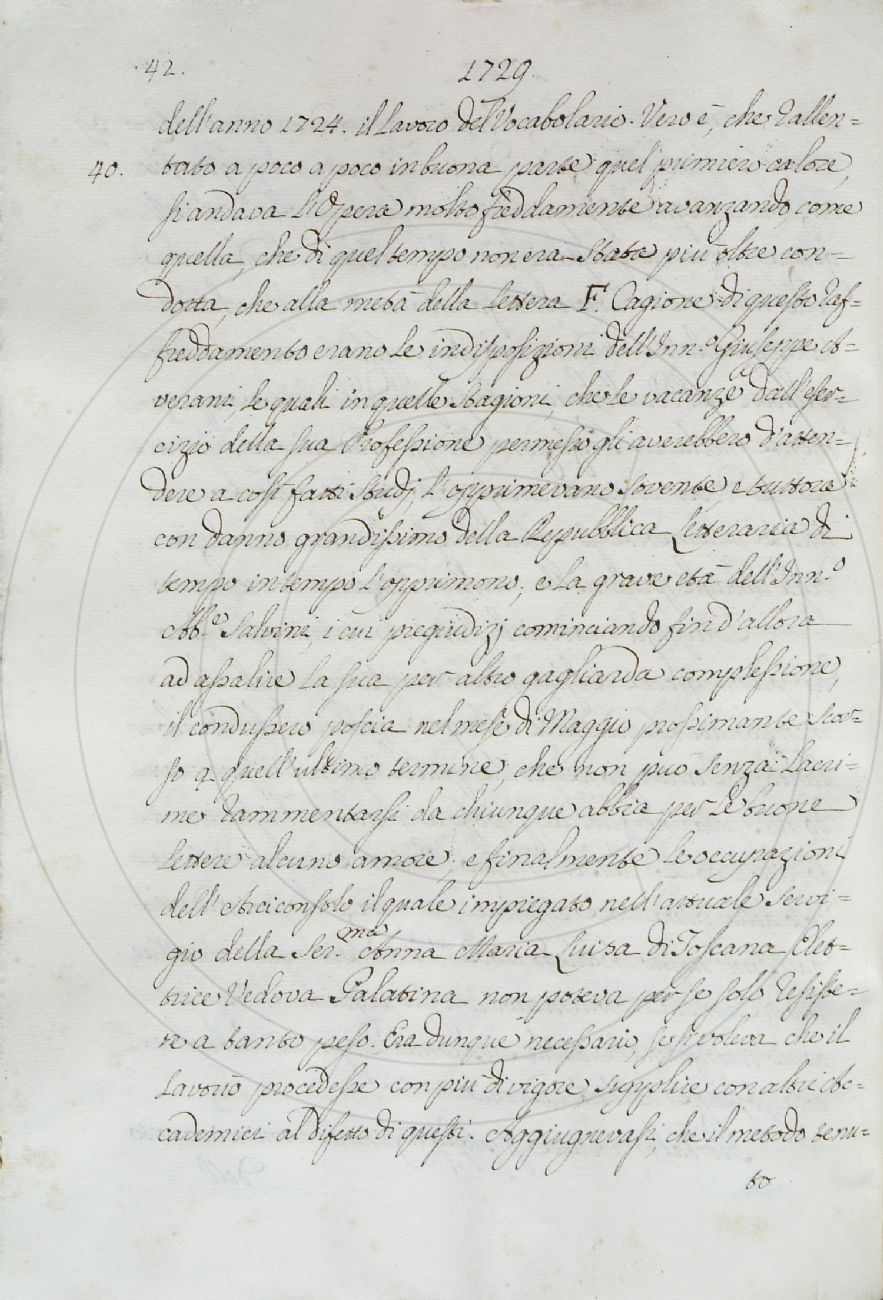 42. 1729.
dell'anno 1724. il Lavoro del Vocabolario. Vero è, che rallen=
40. tato a poco a poco in buona parte quel primiero calore,
si andava l'Opera molto freddamente avanzando, come
quella, che di quel tempo non era stata più oltre con=
dotta, che alla metà della lettera F. Cagione di questo raf=
freddamento erano le indisposizioni dell'Inn.o Giuseppe A=
verani, le quali in quelle stagioni, che le vacanze dall'eser=
cizio della sua Professione permesso gli averebbero d'atten=
dere a così fatti studj, l'opprimevano sovente e tuttora
con danno grandissimo della Repubblica Letteraria di
tempo in tempo l'opprimono; e la grave età dell'Inn.o
Ab.e Salvini, i cui pregiudizj cominciando fin d'allora
ad assalire la sua per altro gagliarda complessione,
il condussero poscia nel mese di Maggio prossimante scor=
so a quell'ultimo termine, che non può senza lacri=
me rammentarsi da chiunque abbia per le buone
lettere alcuno amore; e finalmente le occupazioni
dell'Arciconsolo il quale impiegato nell'attuale servi=
gio della Ser.ma Anna Maria Luisa di Toscana Elet=
trice Vedova Palatina non poteva per se solo resiste=
re a tanto peso. Era dunque necessario, se si volea che il
Lavorio procedesse con più di vigore, supplire con altri Ac=
cademici al difetto di questi. Aggiugnevasi, che il metodo tenu=
to